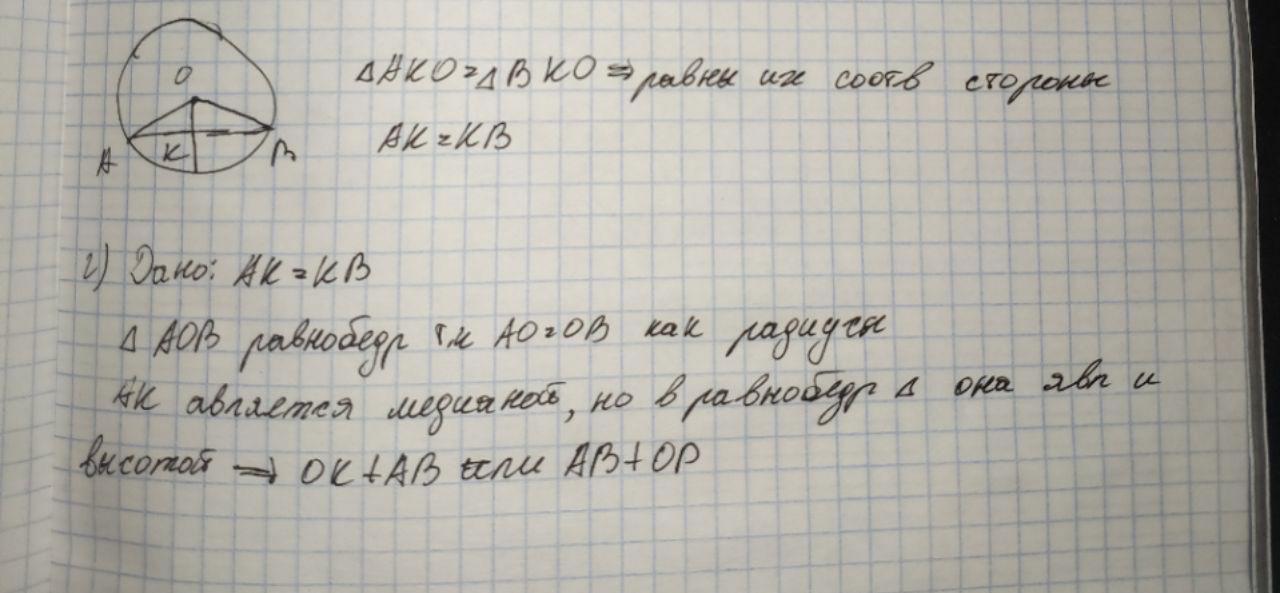 O
A
K
B
ΔAKO=ΔBKO ⇒ равны их соотв стороны
AK=KB
2) Дано: AK=KB
Δ AOB равнобедр т.к AO=OB как радиусы
AK является медианой, но в равнобедр Δ она явл и
высотой ⇒ OK⊥AB или AB⊥OP